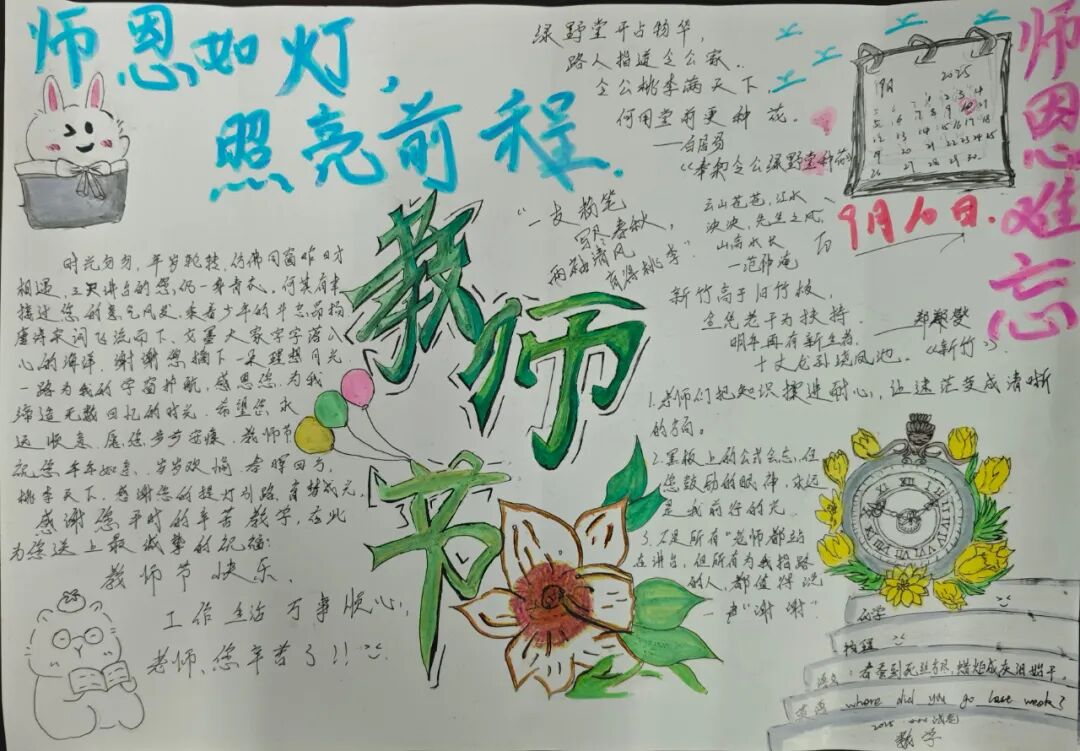 师恩如灯,
照亮前程.
绿野堂开占物华,
路人指道令公家.
令公桃李满天下,
何用堂前更种花.
—白居易
《奉和令公绿野堂种花》
9月 2025
9月10日.
师恩难忘
"一支粉笔
写尽春秋,
两袖清风
育得桃李"
云山苍苍,江水
泱泱,先生之风,
山高水长
—范仲淹
新竹高于旧竹枝,
全凭老干为扶持.
明年再有新生者,
十丈龙孙绕凤池.
—郑燮
《新竹》
教师节
时光匆匆,年岁轮转,仿佛同窗昨日才
相遇,三尺讲台的您,仍一身青衣,何其有幸
接近您的意气风发,乘着少年的斗志昂扬
唐诗宋词飞流而下,文墨大家字字落入
心的海洋.谢谢您摘下一朵理想月光
一路为我的学窗护航,感恩您,为我
缔造无数回忆的时光.希望您永
远 愿您步步安康.教师节
祝您年年如意.岁岁欢愉,春晖四方,
桃李天下.感谢您的提灯引路,育梦成光.
感谢您平时的辛苦教学,在此
为您送上最诚挚的祝福:
教师节快乐,
工作生活万事顺心,
老师,您辛苦了!!
1.老师们把知识揉进耐心,让迷茫变成清晰
的方向。
2.黑板上的公式会忘,但
您鼓励的眼神,永远
是我前行的光
3.不是所有"老师都站
在讲台,但所有为我指路
的人,都值得说
一声"谢谢"
化学
物理
语文:春蚕到死丝方尽,蜡炬成灰泪始干,
英语 where did you go last week?
数学